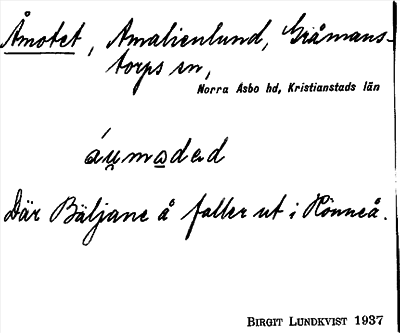 Åmotet, Amalienlund, Gråmans-
torps sn,
Norra Åsbo hd, Kristianstads län
Där Bäljane å faller ut i Rönneå.
BIRGIT LUNDKVIST 1937